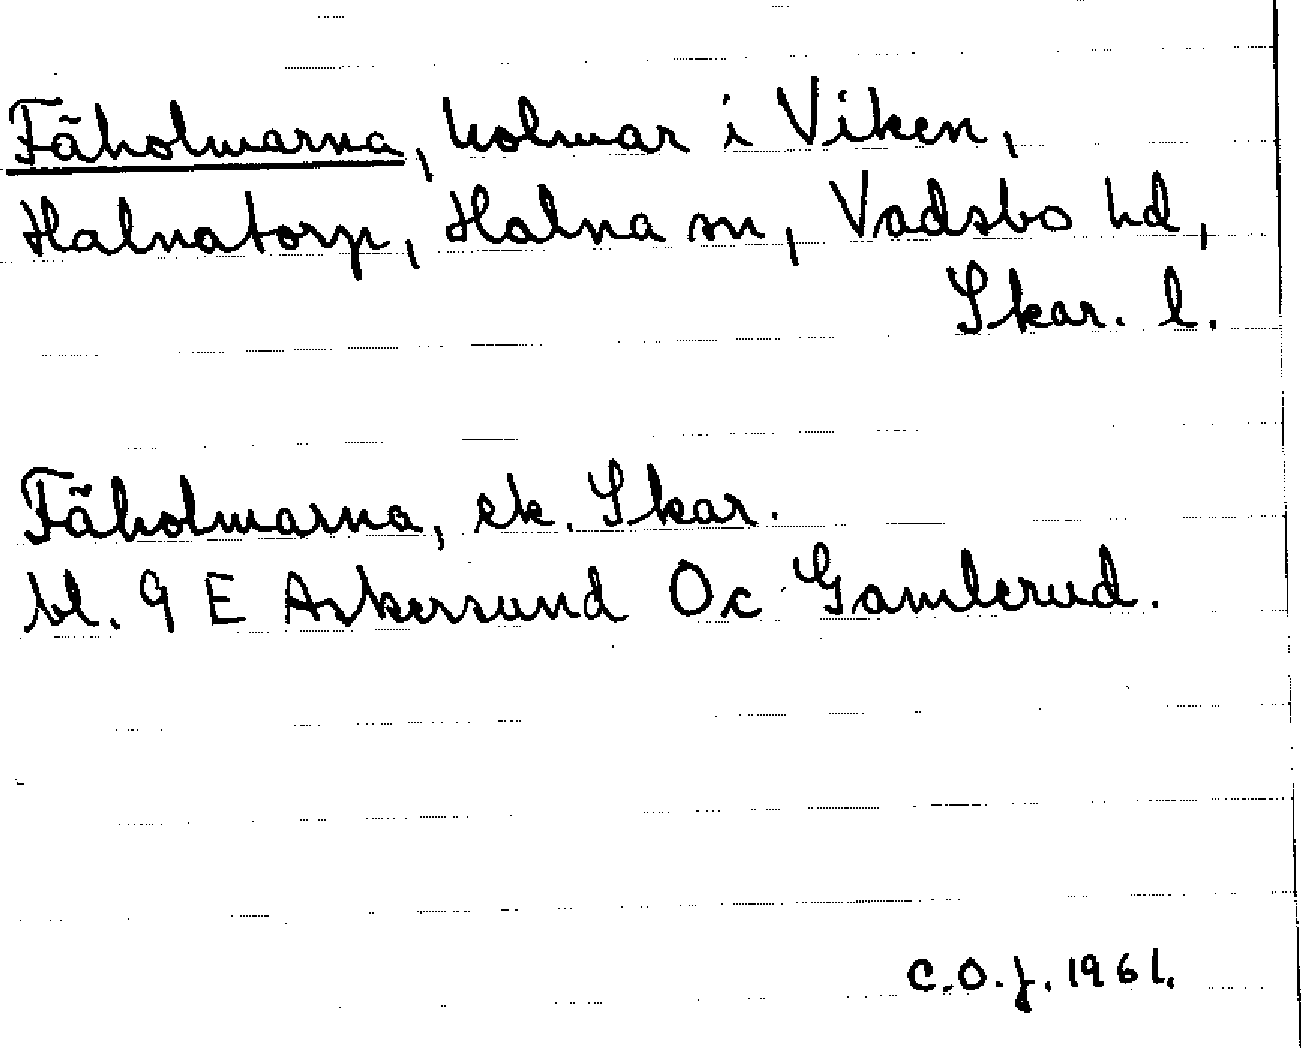 Fäholmarna, holmar i Viken,
Halnatorp, Halna sn, Vadsbo hd,
Skar. l.
Fäholmarna, ek. Skar.
bl. 9 E Askersund Oc Gamlerud.
C.O.J. 1961.